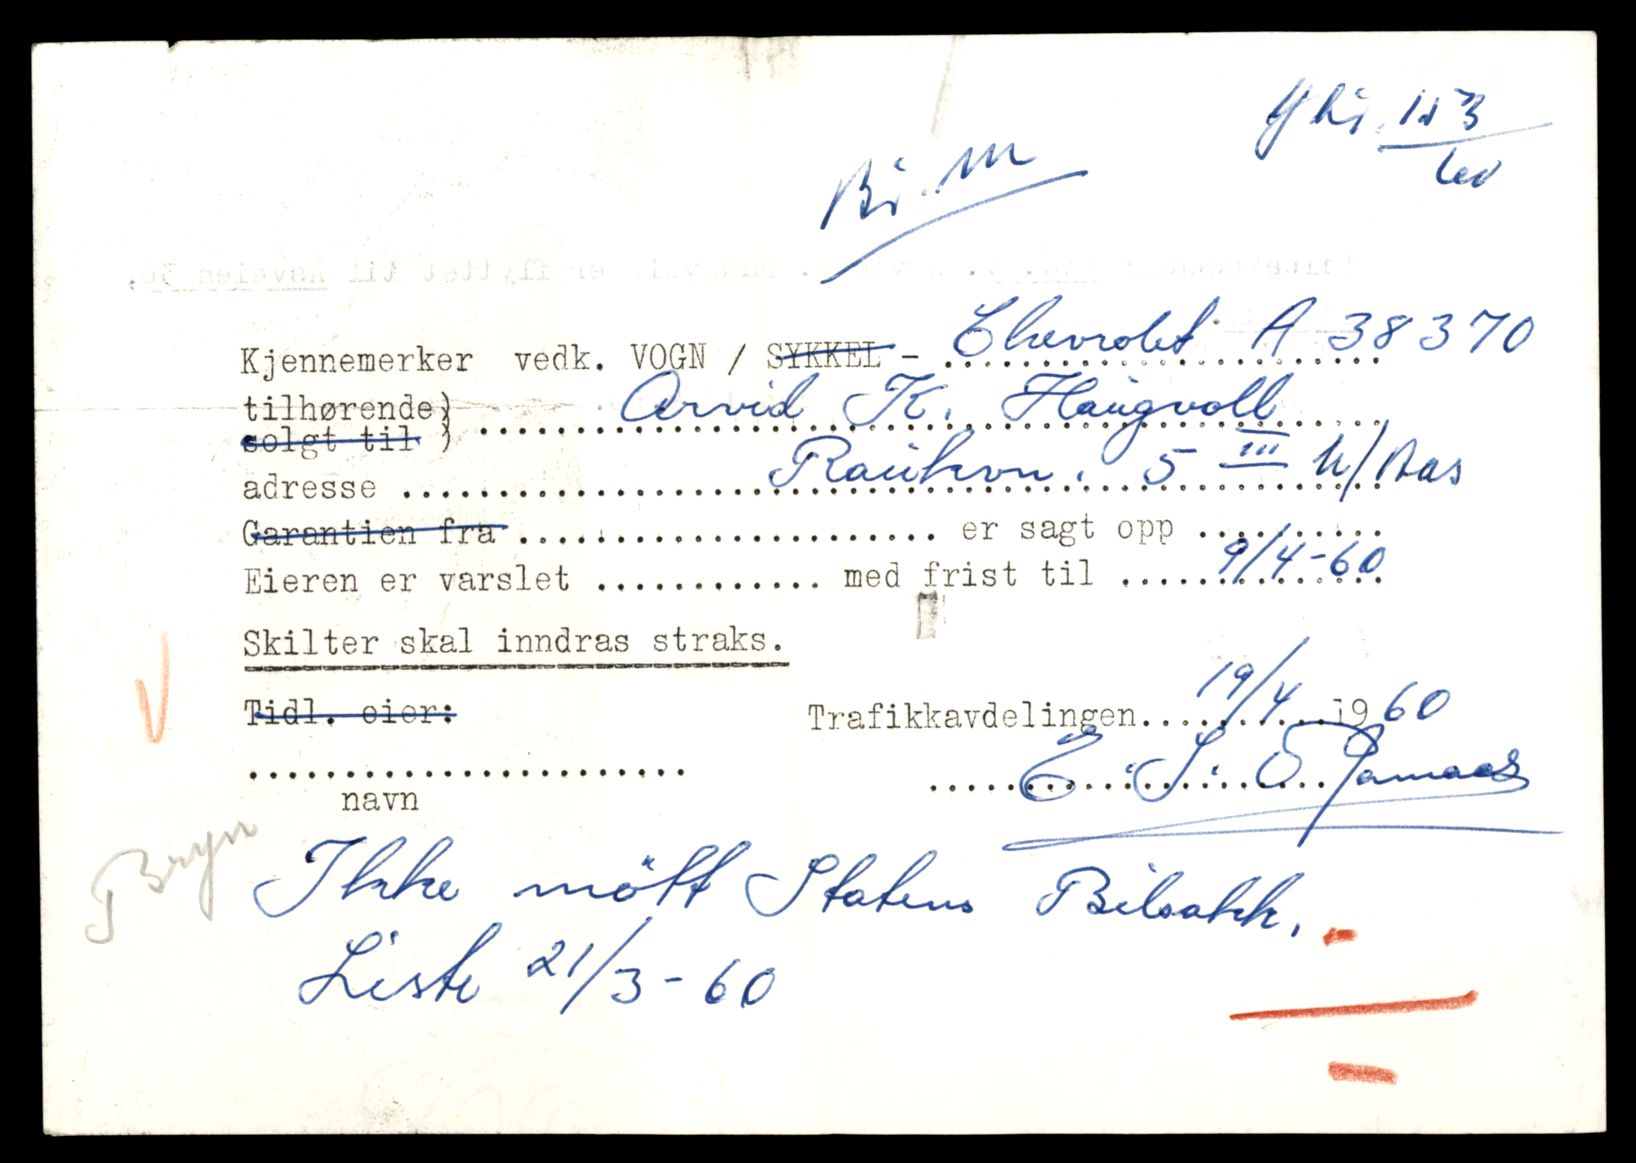 Bj. M
Kjennemerker vedk. VOGN / SYKKEL - Chevrolet A 38370
tilhørende)
solgt til ) Arvid K. Haugvoll
adresse Rauhvn. 5 III
Garantien fra ........................ er sagt opp ..........
Eieren er varslet ............ med frist til 9/4-60
Skilter skal inndras straks.
Tidl. eier: Trafikkavdelingen 19/4 1960
navn
Bryn
Ikke mött Statens Bilsakk.
Liste 21/3-60